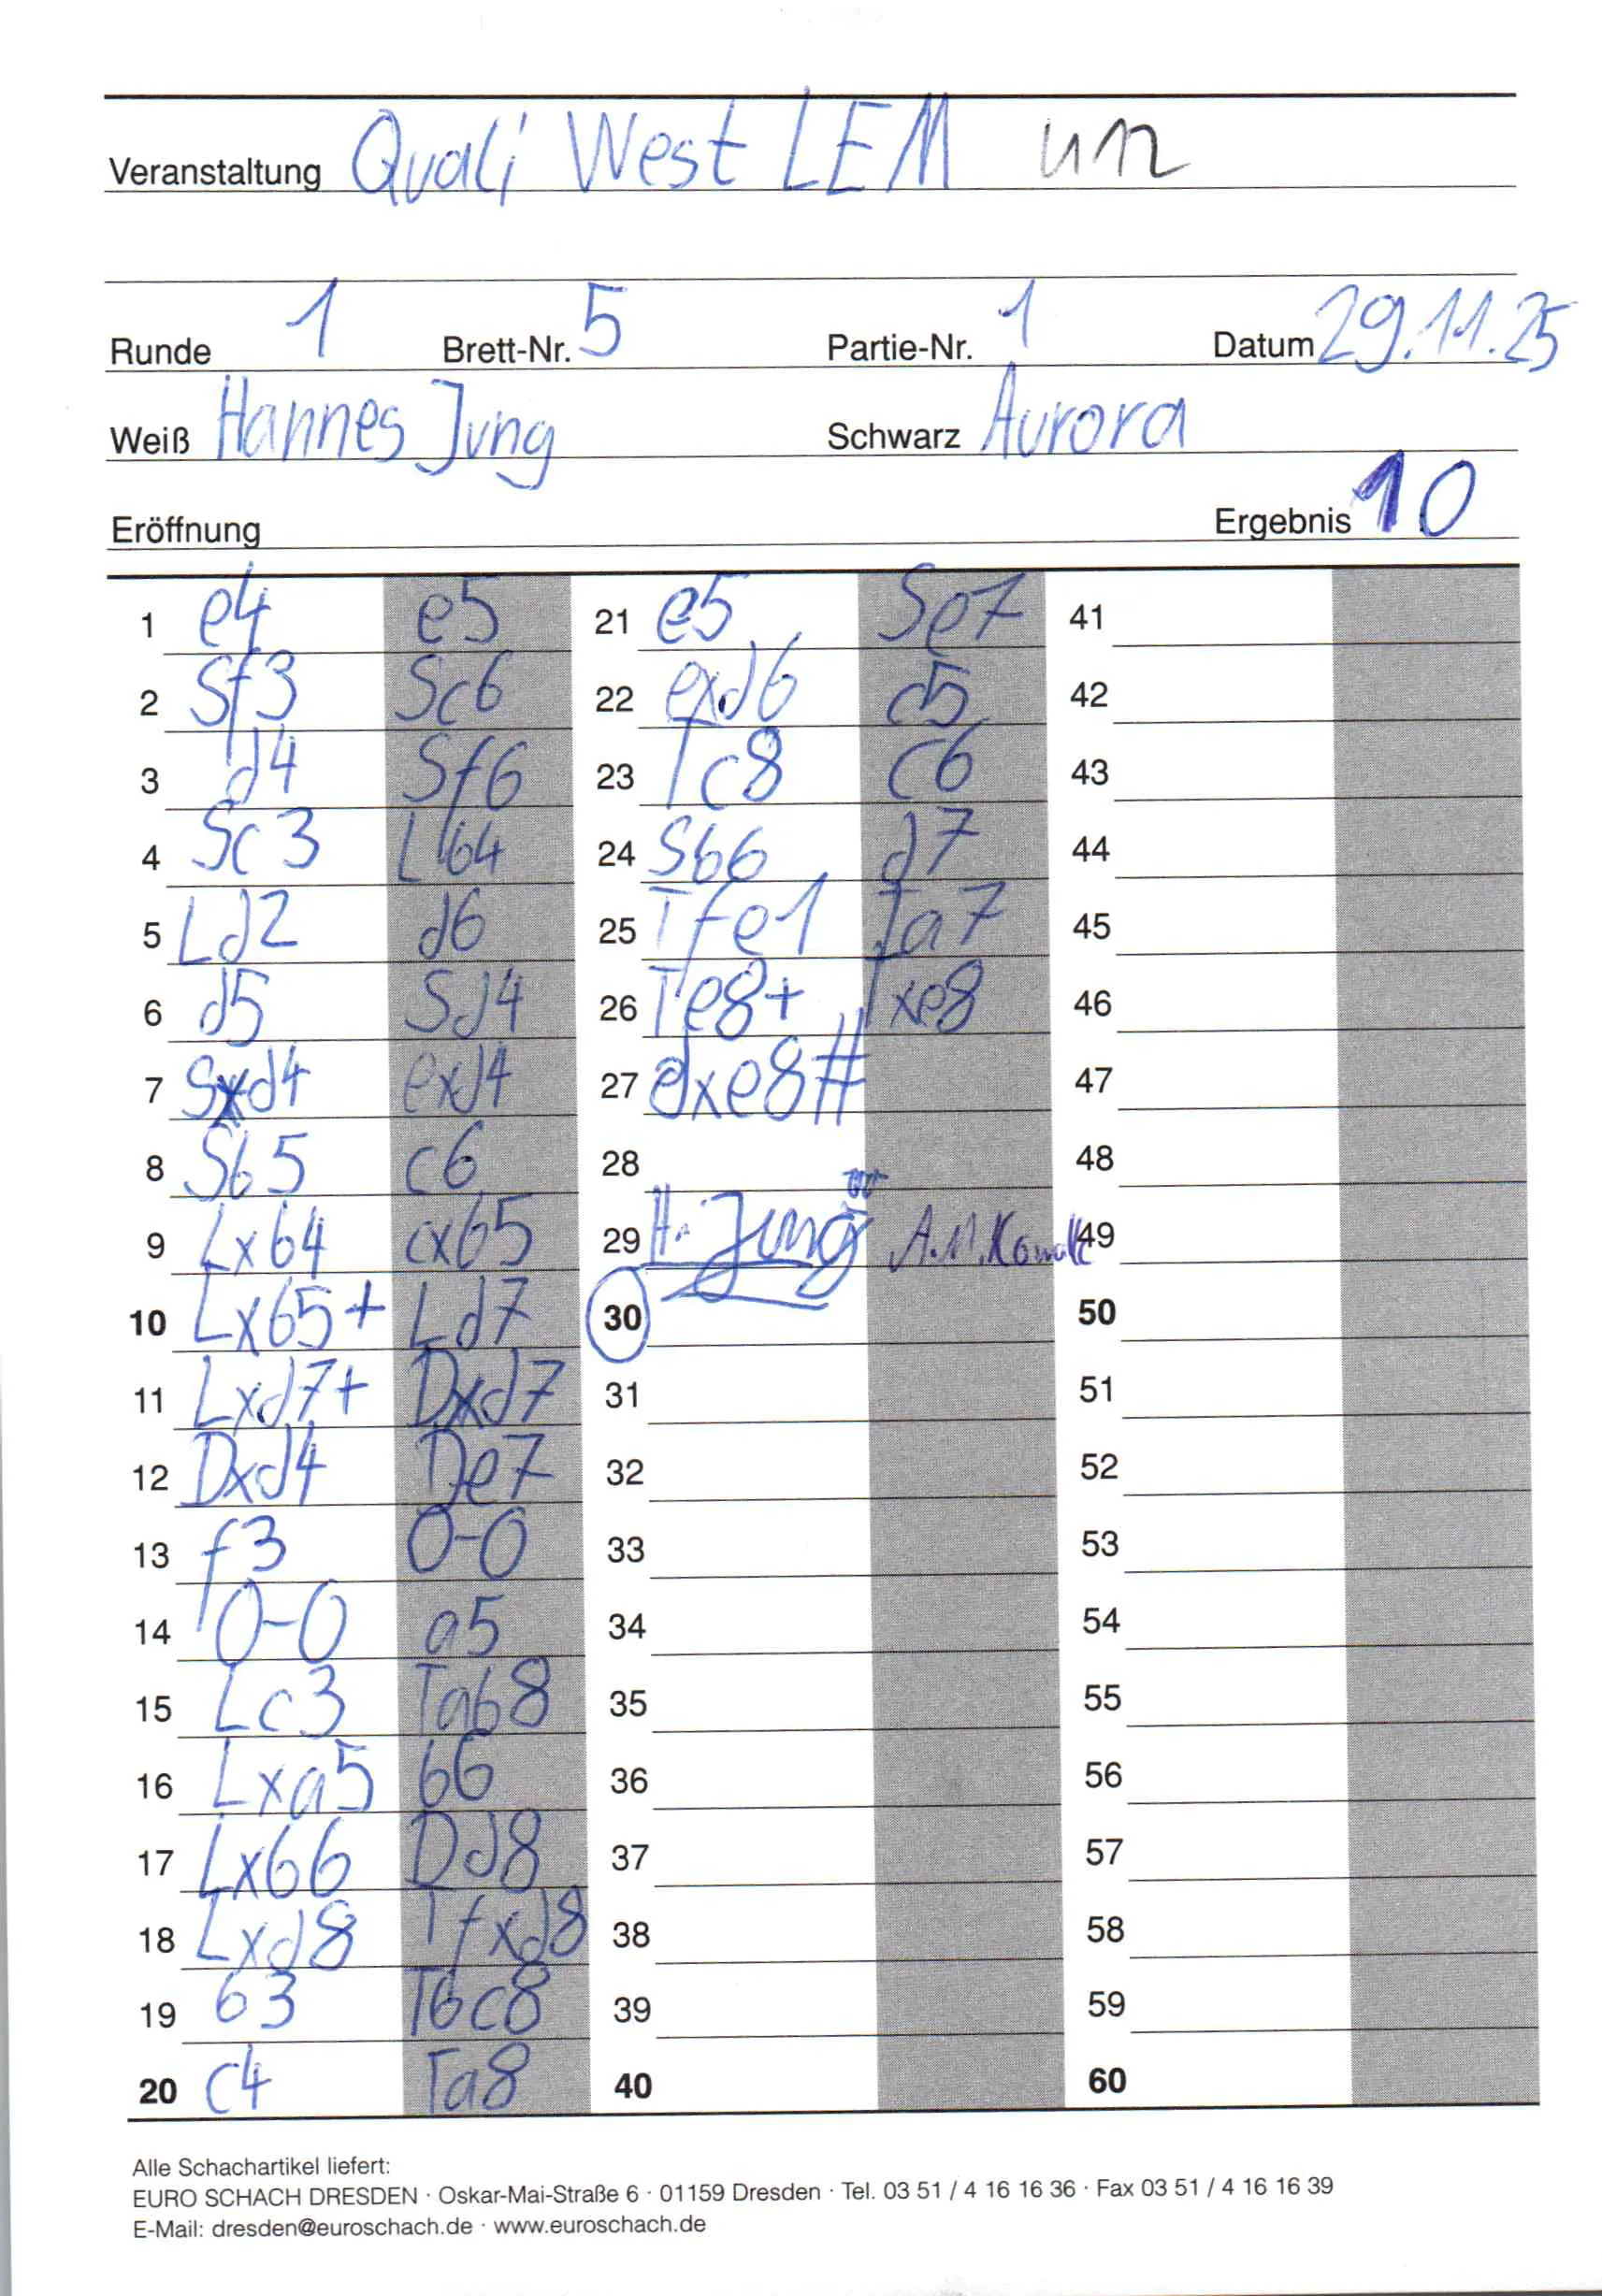 Veranstaltung Quali West LEM U12
Runde 1 Brett-Nr. 5 Partie-Nr. 1 Datum 29.11.25
Weiß Hannes Jung Schwarz Aurora
Eröffnung Ergebnis 10
1 e4 e5 21 e5 Se7 41
2 Sf3 Sc6 22 exd6 d5 42
3 d4 Sf6 23 Tc8 c6 43
4 Sc3 Lb4 24 Sb6 d7 44
5 Ld2 d6 25 Tfe1 Ta7 45
6 d5 Sd4 26 Te8+ Txe8 46
7 Sxd4 exd4 27 dxe8# 47
8 Sb5 c6 28 48
9 Lxb4 cxb5 29 H. Jung A.M. 49
10 Lxb5+ Ld7 30 50
11 Lxd7+ Dxd7 31 51
12 Dxd4 De7 32 52
13 f3 0-0 33 53
14 0-0 a5 34 54
15 Lc3 Tab8 35 55
16 Lxa5 b6 36 56
17 Lxb6 Dd8 37 57
18 Lxd8 Tfxd8 38 58
19 b3 Tbc8 39 59
20 c4 Ta8 40 60
Alle Schachartikel liefert:
EURO SCHACH DRESDEN · Oskar-Mai-Straße 6 · 01159 Dresden · Tel. 03 51 / 4 16 16 36 · Fax 03 51 / 4 16 16 39
E-Mail: dresden@euroschach.de · www.euroschach.de